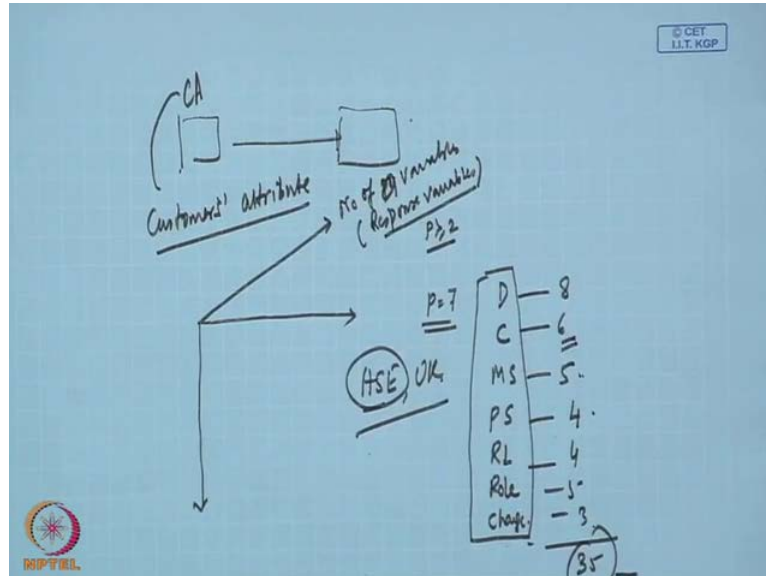 © CET
I.I.T. KGP
CA
Customers' attribute
No of variables
(Response variables)
p ≥ 2
p = 7
HSE, UK
D — 8
C — 6
MS — 5
PS — 4
RL — 4
Role — 5
Change — 3
35
NPTEL